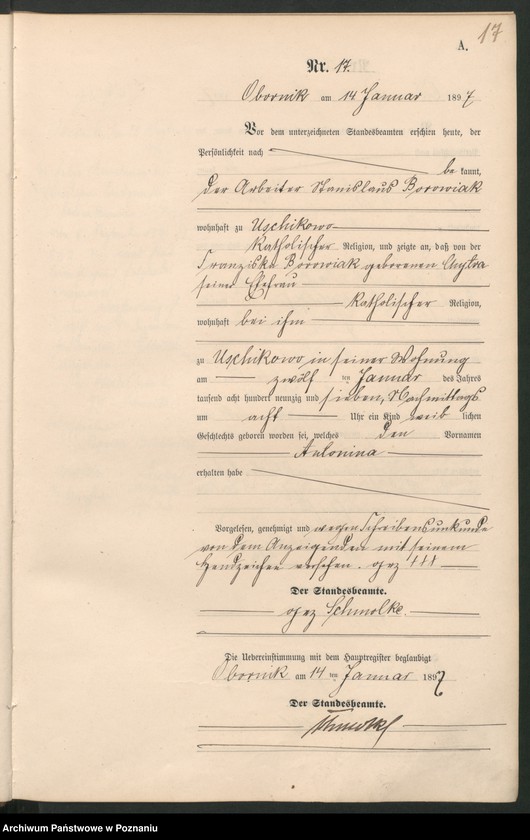 17
A.
Nr. 17.
Obornik am 14 Januar 1897
Vor dem unterzeichneten Standesbeamten erschien heute, der
Persönlichkeit nach
be kannt,
der Arbeiter Stanislaus Borowiak
wohnhaft zu Uschikowo
katholischer Religion, und zeigte an, daß von der
Franziska Borowiak geborenen
seiner Ehefrau
katholischer Religion,
wohnhaft bei ihm
zu Uschikowo in seiner Wohnung
am zwölf ten Januar des Jahres
tausend acht hundert neunzig und sieben, Nachmittags
um acht Uhr ein Kind weib lichen
Geschlechts geboren worden sei, welches den Vornamen
Antonina
erhalten habe
Vorgelesen, genehmigt und wegen Schreibensunkunde
von dem Anzeigenden mit seinem
Handzeichen versehen. gez +++
Der Standesbeamte.
gez Schmolke.
Die Uebereinstimmung mit dem Hauptregister beglaubigt
Obornik am 14 ten Januar 1897
Der Standesbeamte.
Schmolke
Archiwum Państwowe w Poznaniu